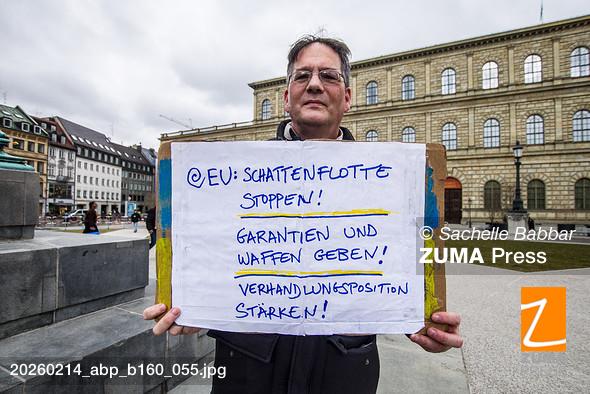 @EU: SCHATTENFLOTTE
STOPPEN!
GARANTIEN UND
WAFFEN GEBEN!
VERHANDLUNGSPOSITION
STÄRKEN!
© Sachelle Babbar
ZUMA Press
Z
20260214_abp_b160_055.jpg